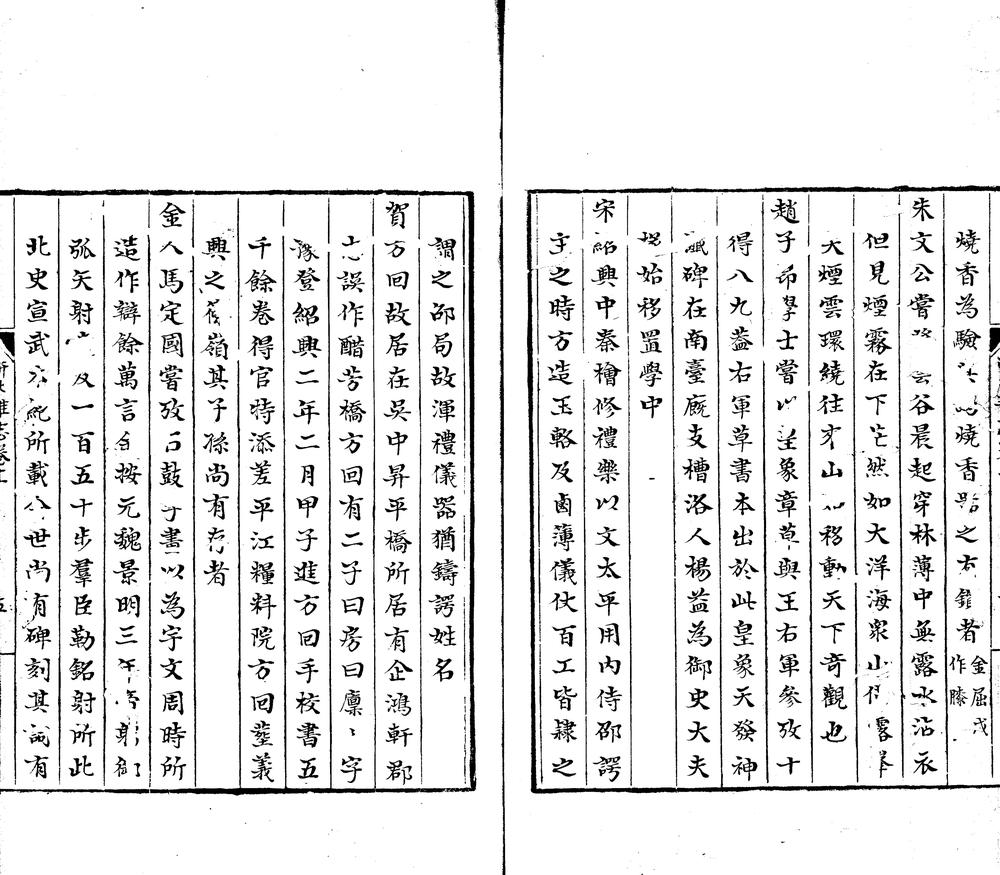 燒香為驗燒香點之有鎚者金屈戍作膝
朱文公嘗登雲谷晨起穿林薄中無露水沾衣
但見煙霧在下茫然如大洋海衆山僅露峯
尖煙雲環繞往来山如移動天下奇觀也
趙子昂學士嘗以皇象章草與王右軍參攷十
得八九葢右軍草書本出於此皇象天發神
讖碑在南臺廐支槽洛人楊益為御史大夫
始移置學中
宋紹興中秦檜修禮樂以文太平用內侍邵諤
主之時方造玉輅及鹵薄儀仗百工皆隸之
謂之邵局故渾禮儀器猶鑄諤姓名
賀方回故居在吳中昇平橋所居有企鴻軒郡
志誤作醋芳橋方回有二子曰房曰廩〻字
豫登紹興二年二月甲子進方回手校書五
千餘卷得官特添差平江糧料院方回塟義
興之篠嶺其子孫尚有存者
金人馬定國嘗攷石鼓字畫以為宇文周時所
造作辯餘萬言余按元魏景明三年帝躬御
弧矢射及一百五十步羣臣勒銘射所此
北史宣武紀所載今世尚有碑刻其詞有